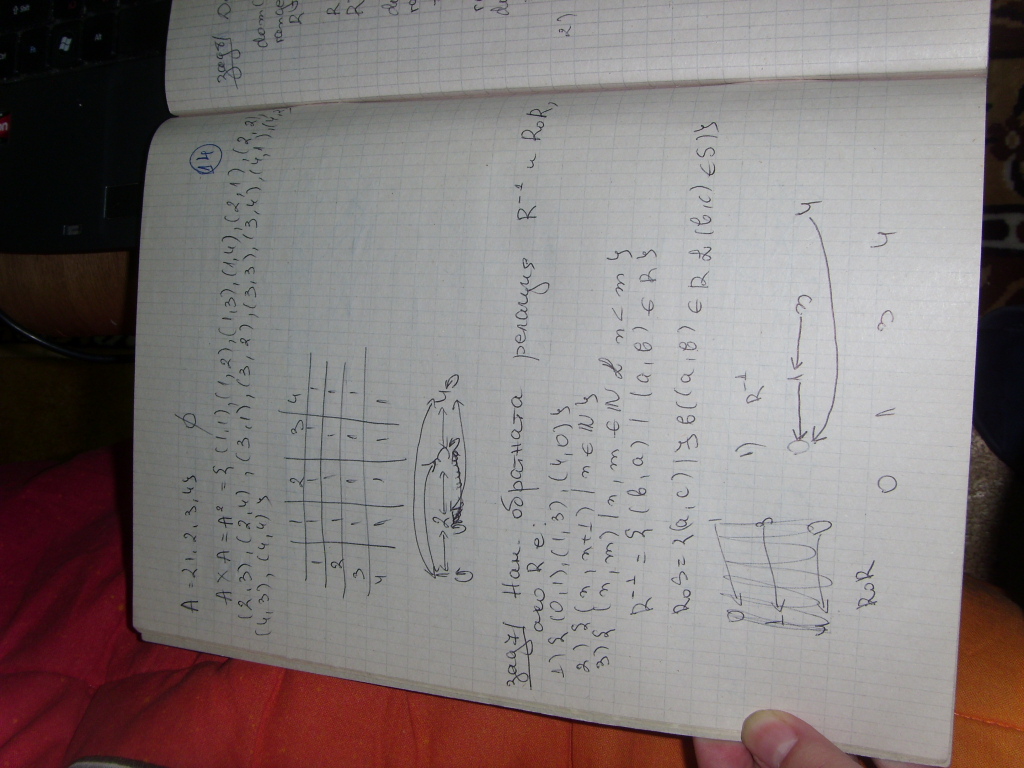 14
A = {1, 2, 3, 4} ∅
A × A = A² = { (1,1), (1,2), (1,3), (1,4), (2,1), (2,2),
(2,3), (2,4), (3,1), (3,2), (3,3), (3,4), (4,1), (4,2),
(4,3), (4,4) }
1 2 3 4
1 1 1 1 1
2 1 1 1 1
3 1 1 1 1
4 1 1 1 1
зад 7/ Нам. обратната релация R⁻¹ и R∘R,
ако R е:
1) { (0,1), (1,3), (4,0) }
2) { (n, n+1) | n ∈ ℕ }
3) { (n, m) | n, m ∈ ℕ & n < m }
R⁻¹ = { (b, a) | (a, b) ∈ R }
R∘S = {(a, c) | ∃ b ((a, b) ∈ R & (b, c) ∈ S)}
1) R⁻¹
0 1 3 4
R∘R
0 1 3 4
зад 8/
2)